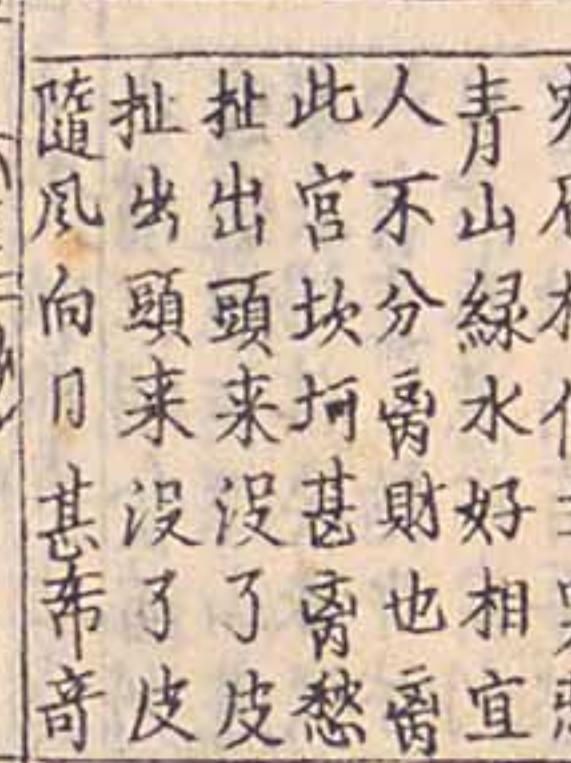 青山緑水好相宜
人不分离財也离
此宮坎坷甚离愁
扯出頭来没了皮
扯出頭来没了皮
隨風向日甚希竒